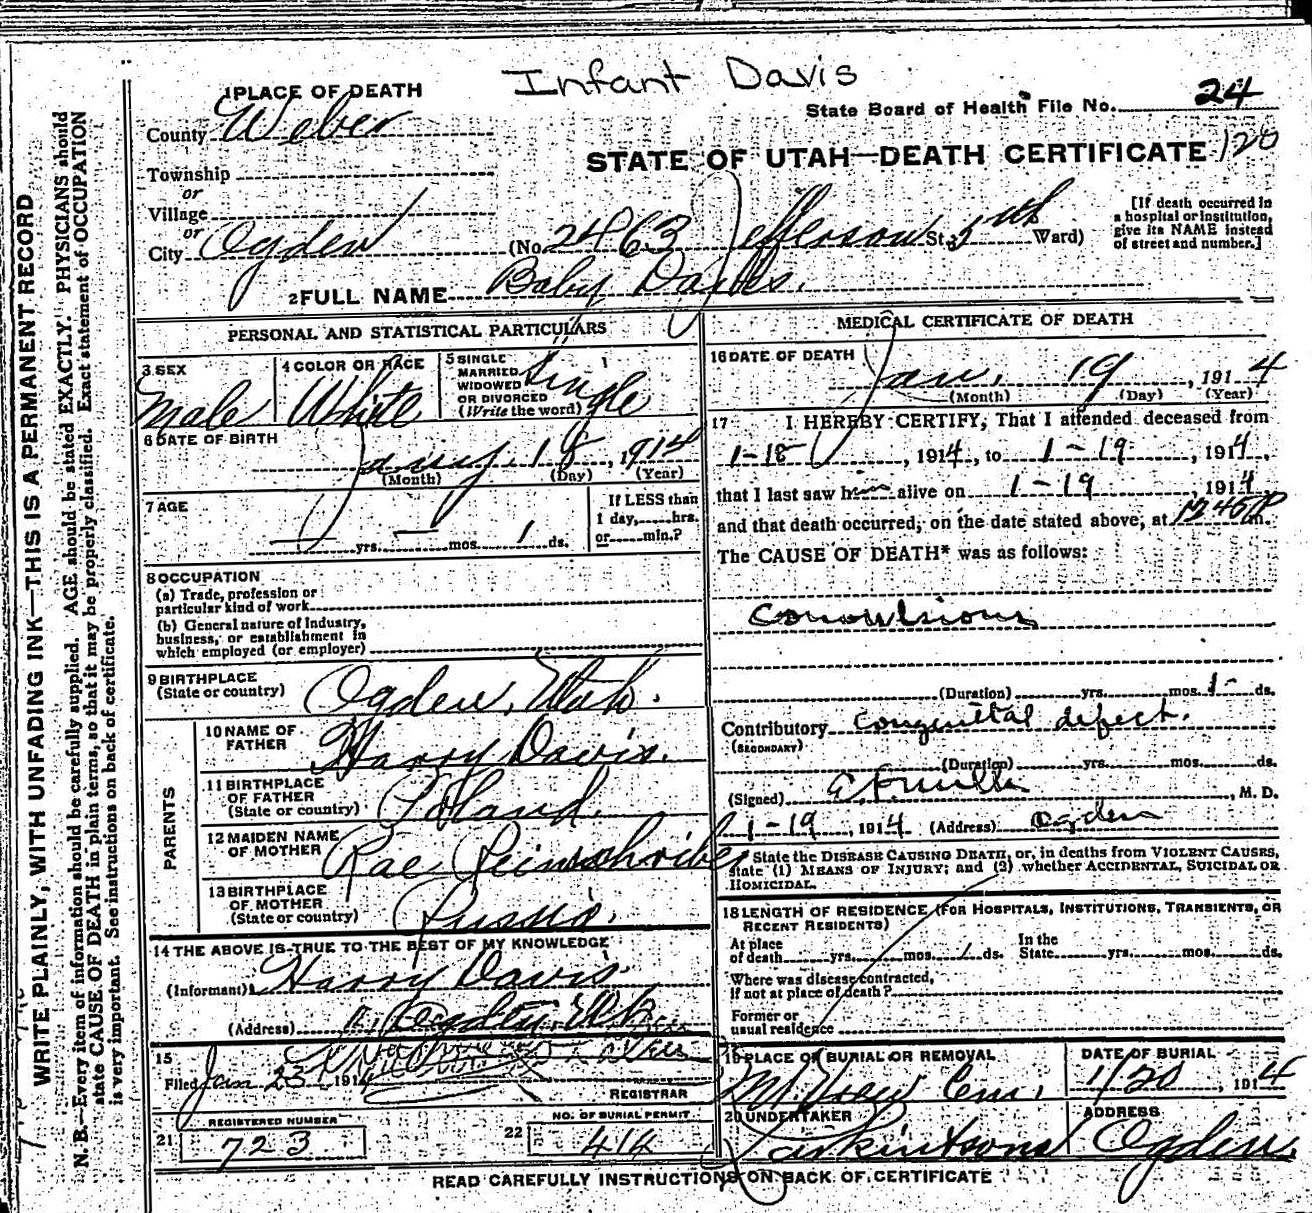 Infant Davis
1 PLACE OF DEATH
State Board of Health File No. 24
County Weber
STATE OF UTAH—DEATH CERTIFICATE 120
Township
or
Village
or
City Ogden (No. 2463 Jefferson St. 5th Ward)
[If death occurred in a hospital or institution, give its NAME instead of street and number.]
2 FULL NAME Baby Davis.
PERSONAL AND STATISTICAL PARTICULARS
3 SEX Male
4 COLOR OR RACE White
5 SINGLE MARRIED WIDOWED OR DIVORCED (Write the word) Single
6 DATE OF BIRTH Jany. 18, 1914
(Month) (Day) (Year)
7 AGE — yrs. — mos. 1 ds.
If LESS than 1 day, hrs. or min.?
8 OCCUPATION
(a) Trade, profession or particular kind of work
(b) General nature of Industry, business, or establishment in which employed (or employer)
9 BIRTHPLACE (State or country) Ogden, Utah.
PARENTS
10 NAME OF FATHER Harry Davis.
11 BIRTHPLACE OF FATHER (State or country) Poland.
12 MAIDEN NAME OF MOTHER Rae
13 BIRTHPLACE OF MOTHER (State or country) Russia.
14 THE ABOVE IS TRUE TO THE BEST OF MY KNOWLEDGE
(Informant) Harry Davis
(Address) Ogden, Utah
15 Filed Jan 23 1914
REGISTRAR
21 REGISTERED NUMBER 723
22 NO. OF BURIAL PERMIT 414
MEDICAL CERTIFICATE OF DEATH
16 DATE OF DEATH Jan. 19, 1914
(Month) (Day) (Year)
17 I HEREBY CERTIFY, That I attended deceased from
1-18, 1914, to 1-19, 1914,
that I last saw him alive on 1-19 1914
and that death occurred, on the date stated above, at 1245 P m.
The CAUSE OF DEATH* was as follows:
convulsions
(Duration) yrs. mos. 1- ds.
Contributory congenital defect.
(SECONDARY)
(Duration) yrs. mos. ds.
(Signed) M. D.
1-19, 1914 (Address) Ogden
State the DISEASE CAUSING DEATH, or, in deaths from VIOLENT CAUSES, state (1) MEANS OF INJURY; and (2) whether ACCIDENTAL, SUICIDAL OR HOMICIDAL.
18 LENGTH OF RESIDENCE (FOR HOSPITALS, INSTITUTIONS, TRANSIENTS, OR RECENT RESIDENTS)
At place of death yrs. mos. 1 ds. In the State yrs. mos. ds.
Where was disease contracted, if not at place of death?
Former or usual residence
19 PLACE OF BURIAL OR REMOVAL Mt. View Cem.
DATE OF BURIAL 1/20, 1914
20 UNDERTAKER
ADDRESS Ogden.
READ CAREFULLY INSTRUCTIONS ON BACK OF CERTIFICATE
WRITE PLAINLY, WITH UNFADING INK—THIS IS A PERMANENT RECORD
N. B.—Every item of information should be carefully supplied. AGE should be stated EXACTLY. PHYSICIANS should
state CAUSE OF DEATH in plain terms, so that it may be properly classified. Exact statement of OCCUPATION
is very important. See instructions on back of certificate.